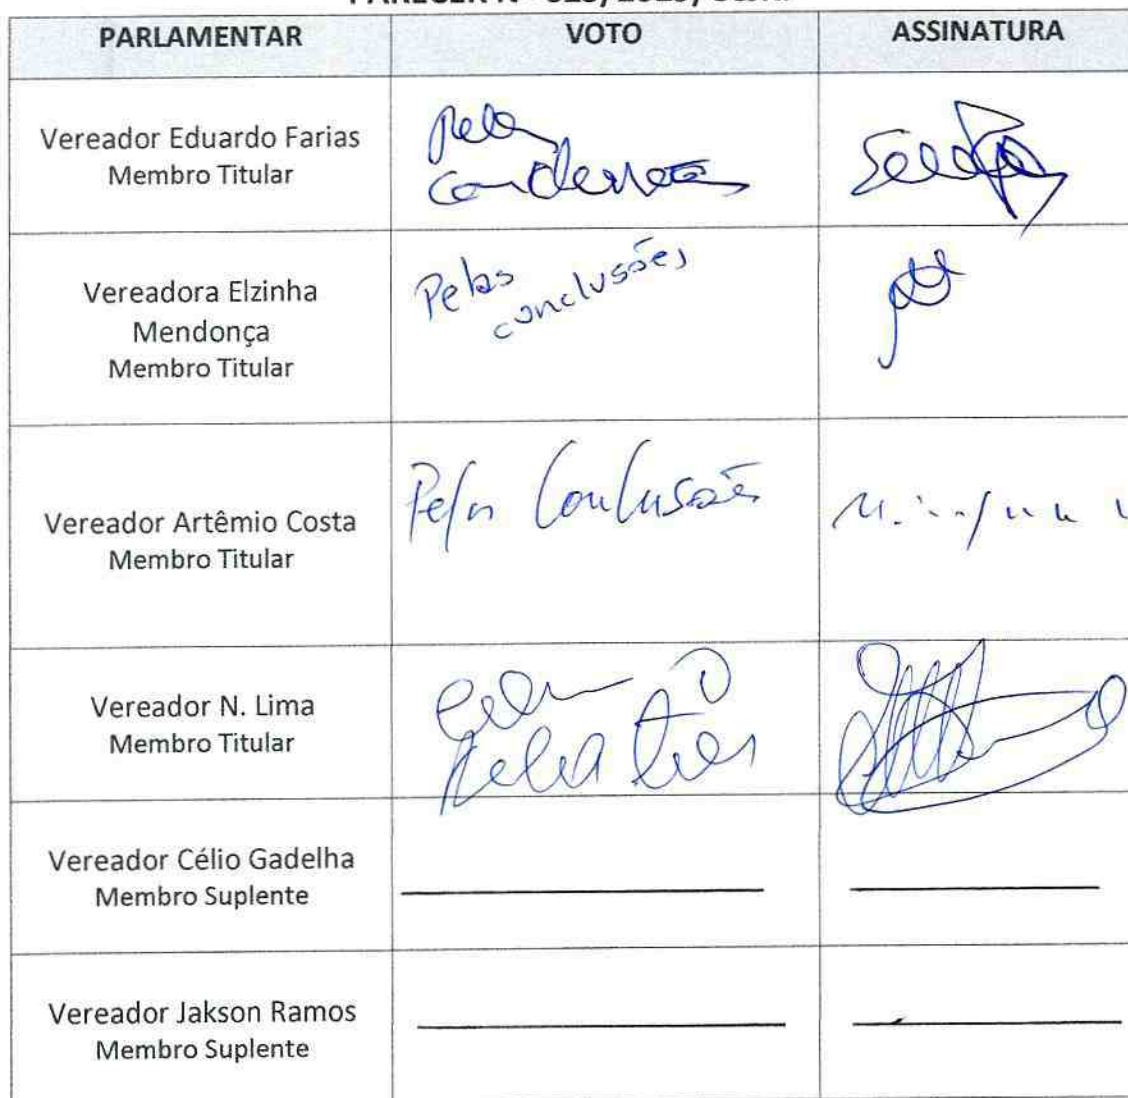 PARLAMENTAR VOTO ASSINATURA
Vereador Eduardo Farias
Membro Titular
Pela
Vereadora Elzinha
Mendonça
Membro Titular
Pelas
conclusões
Vereador Artêmio Costa
Membro Titular
Pelas Conclusões
Vereador N. Lima
Membro Titular
Vereador Célio Gadelha
Membro Suplente
Vereador Jakson Ramos
Membro Suplente